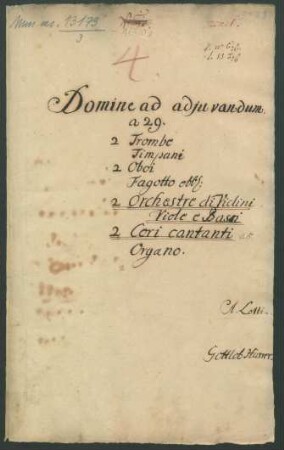 Mus. ms. 13173
3
4.
Domine ad adjuvandum.
a 29.
2 Trombe
Timpani
2 Oboi
Fagotto
2 Orchestre di Violini
Viole e Bassi
2 Cori cantanti
Organo.
A Lotti.
Gottlob